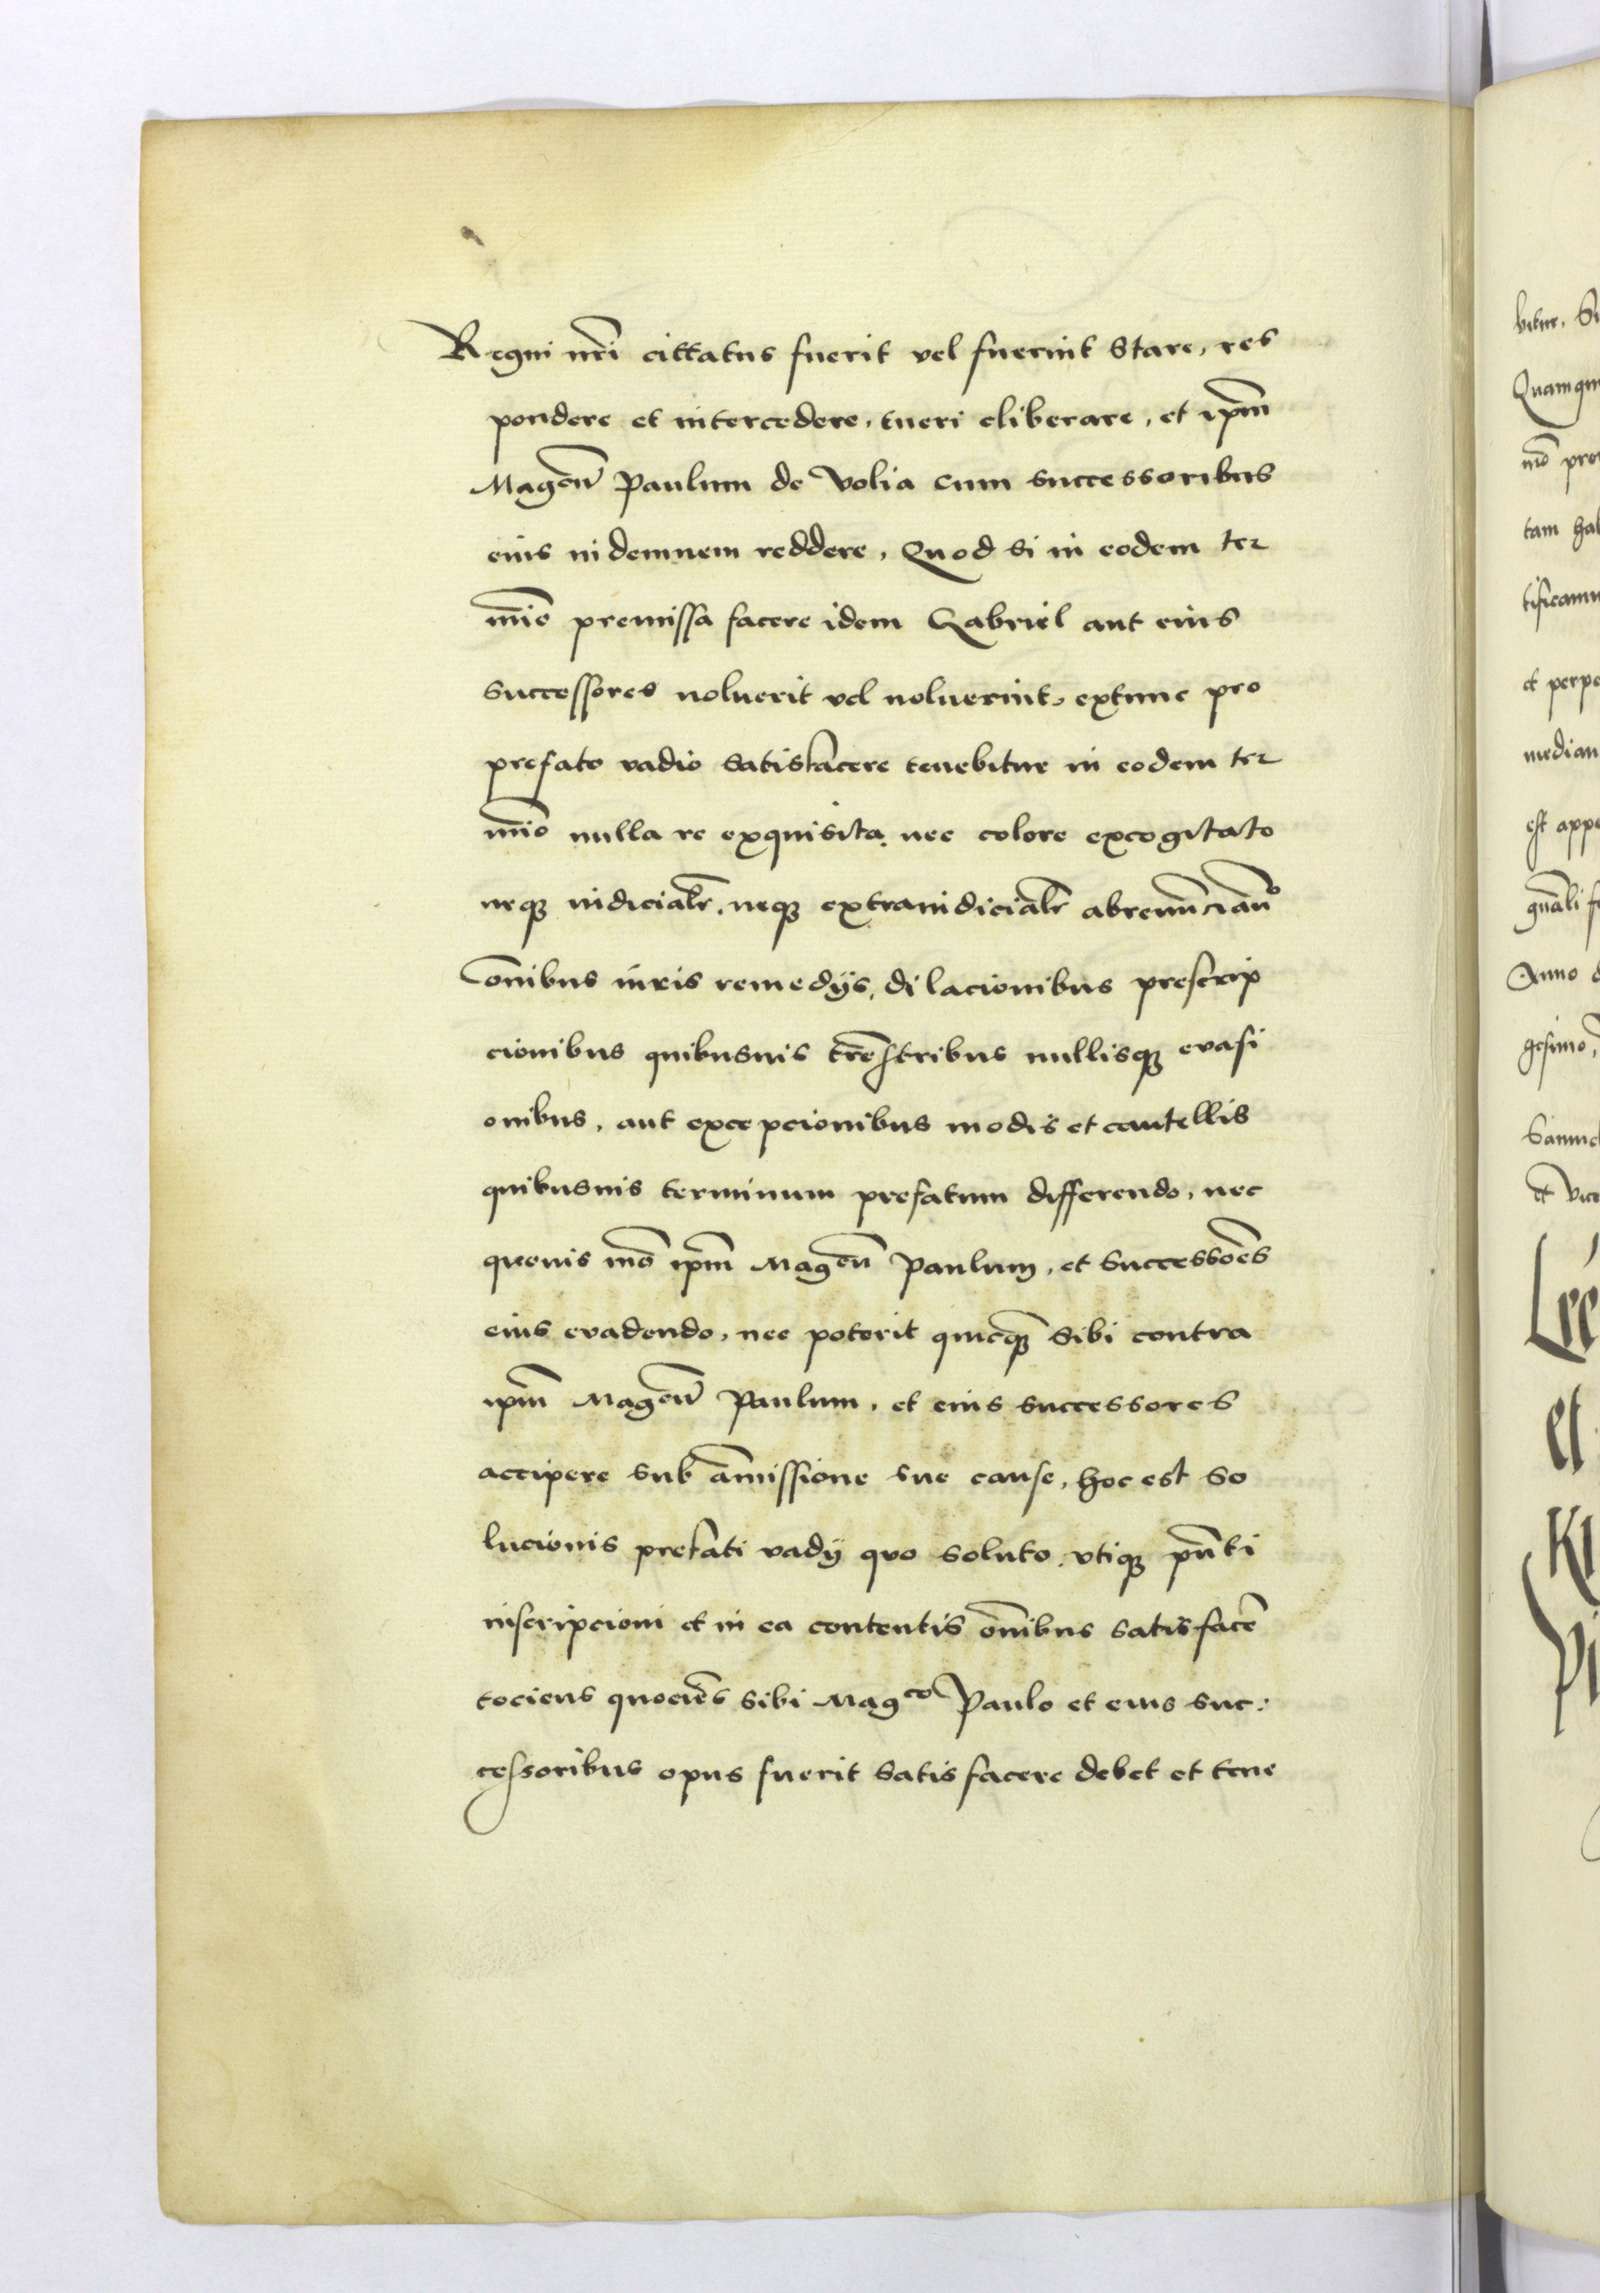 Regni nri cittatus fuerit vel fuerint Stare, res
pondere et intercedere, tueri eliberare, et ipm
Magcu Paulum de Volia cum successoribus
eius indemnem reddere, Quod si in eodem ter
mio premissa facere idem Gabriel aut eius
successores noluerit vel noluerint, extunc pro
prefato vadio satisfacere tenebitur in eodem ter
mio nulla re exquisita, nec colore excogitato
neqz iudicialr, neqz extraiudicialr abrenunciano
omibus iuris remedijs, dilacionibus prescrip
cionibus quibusuis trestribus nullisqz evasi
onibus, aut excepcionibus modis et cautellis
quibusuis terminum prefatum differendo, nec
quouis mo ipm Magcu Paulum, et successoes
eius evadendo, nec poterit quicqz sibi contra
ipm Magcu Paulum, et eius successores
accipere sub amissione sue cause, hoc est so
lucionis prefati vadij quo soluto, vtiqz pnti
inscripcioni et in ea contentis omibus satisface
tociens quociens sibi Magco Paulo et eius suc:
cessoribus opus fuerit satisfacere debet et tene
bitur, Si
mo pro
tam hab
et perpe
median
est appe
Anno d
gesimo,
Samuel
et Vice
et